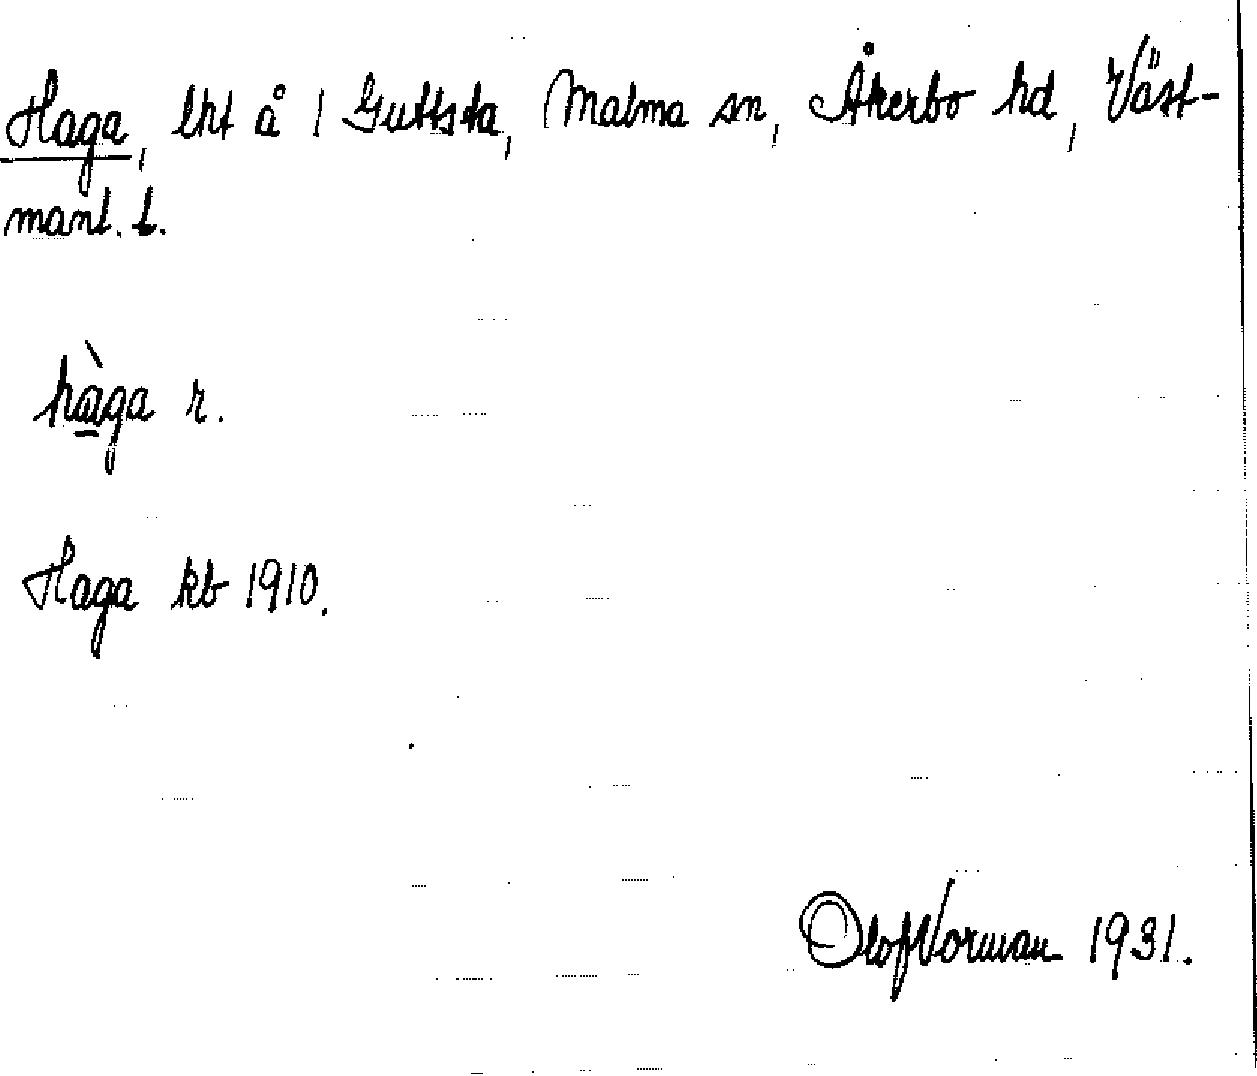 Haga, lht å 1 Guttsta, Malma sn, Åkerbo hd, Väst-
manl. l.
hàga r.
Haga kb 1910.
Olof Norman 1931.